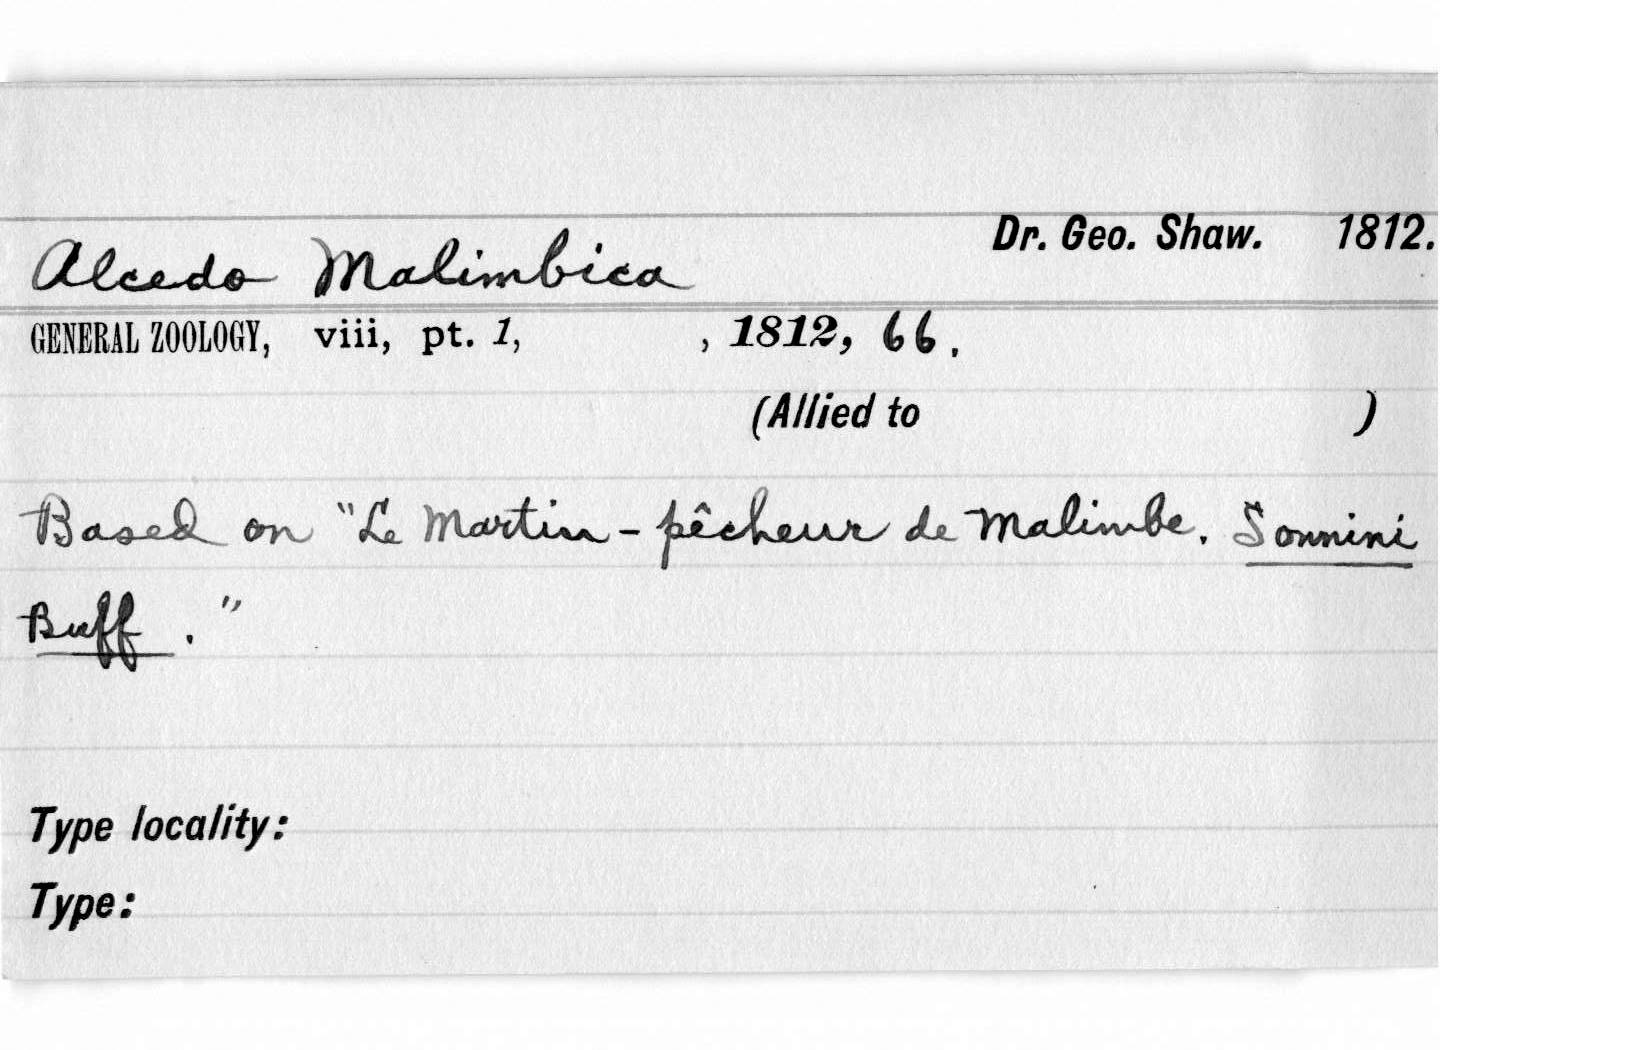 Dr. Geo. Shaw. 1812.
Alcedo Malimbica
GENERAL ZOOLOGY, viii, pt. 1, , 1812, 66.
(Allied to )
Based on "Le Martin-pêcheur de Malimbe. Sonnini
Buff."
Type locality:
Type: